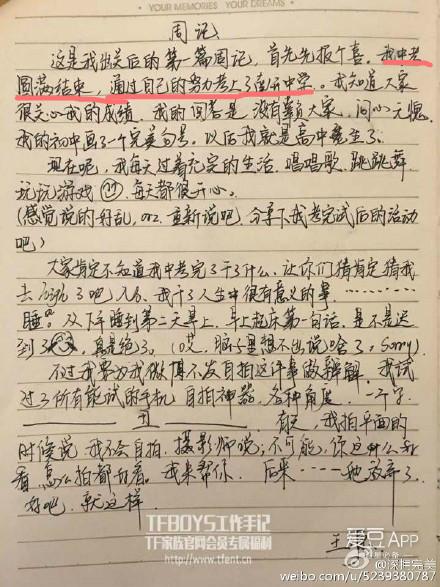 YOUR MEMORIES YOUR DREAMS
周记
这是我出关后的第一篇周记,首先先报个喜。我中考
圆满结束,通过自己的努力考上了南开中学。我知道大家
很关心我的成绩,我的回答是没有辜负大家,问心无愧。
我的初中画了一个完美句号。以后我就是高中生了。
现在呢,我每天过着充实的生活,唱唱歌、跳跳舞、
玩玩游戏,每天都很开心。
(感觉说的好乱,orz.重新说吧,分享下我考完试后的活动
吧)
大家肯定不知道我中考完了干了什么,让你们猜肯定猜我
去 玩了吧,No,我干了人生中很有意义的事……
睡。从下午睡到第二天早上,早上起床第一句话,是不是迟
到了,真是绝了。(哎,脑子里想不出说啥了,Sorry)
不过我要为我微博不发自拍这件事做辩解,我试
过了所有能试的手机,自拍神器,各种角度,一个字
丑 有天,我拍平面的
时候说,我不会自拍,摄影师说:不可能,你这么好
看,怎么拍都好看。我来帮你,后来……他放弃了。
好吧,就这样
王
TFBOYS工作手记
TF家族官网会员专属福利
www.tfent.cn
爱豆APP
@深框完美
weibo.com/u/5239380787